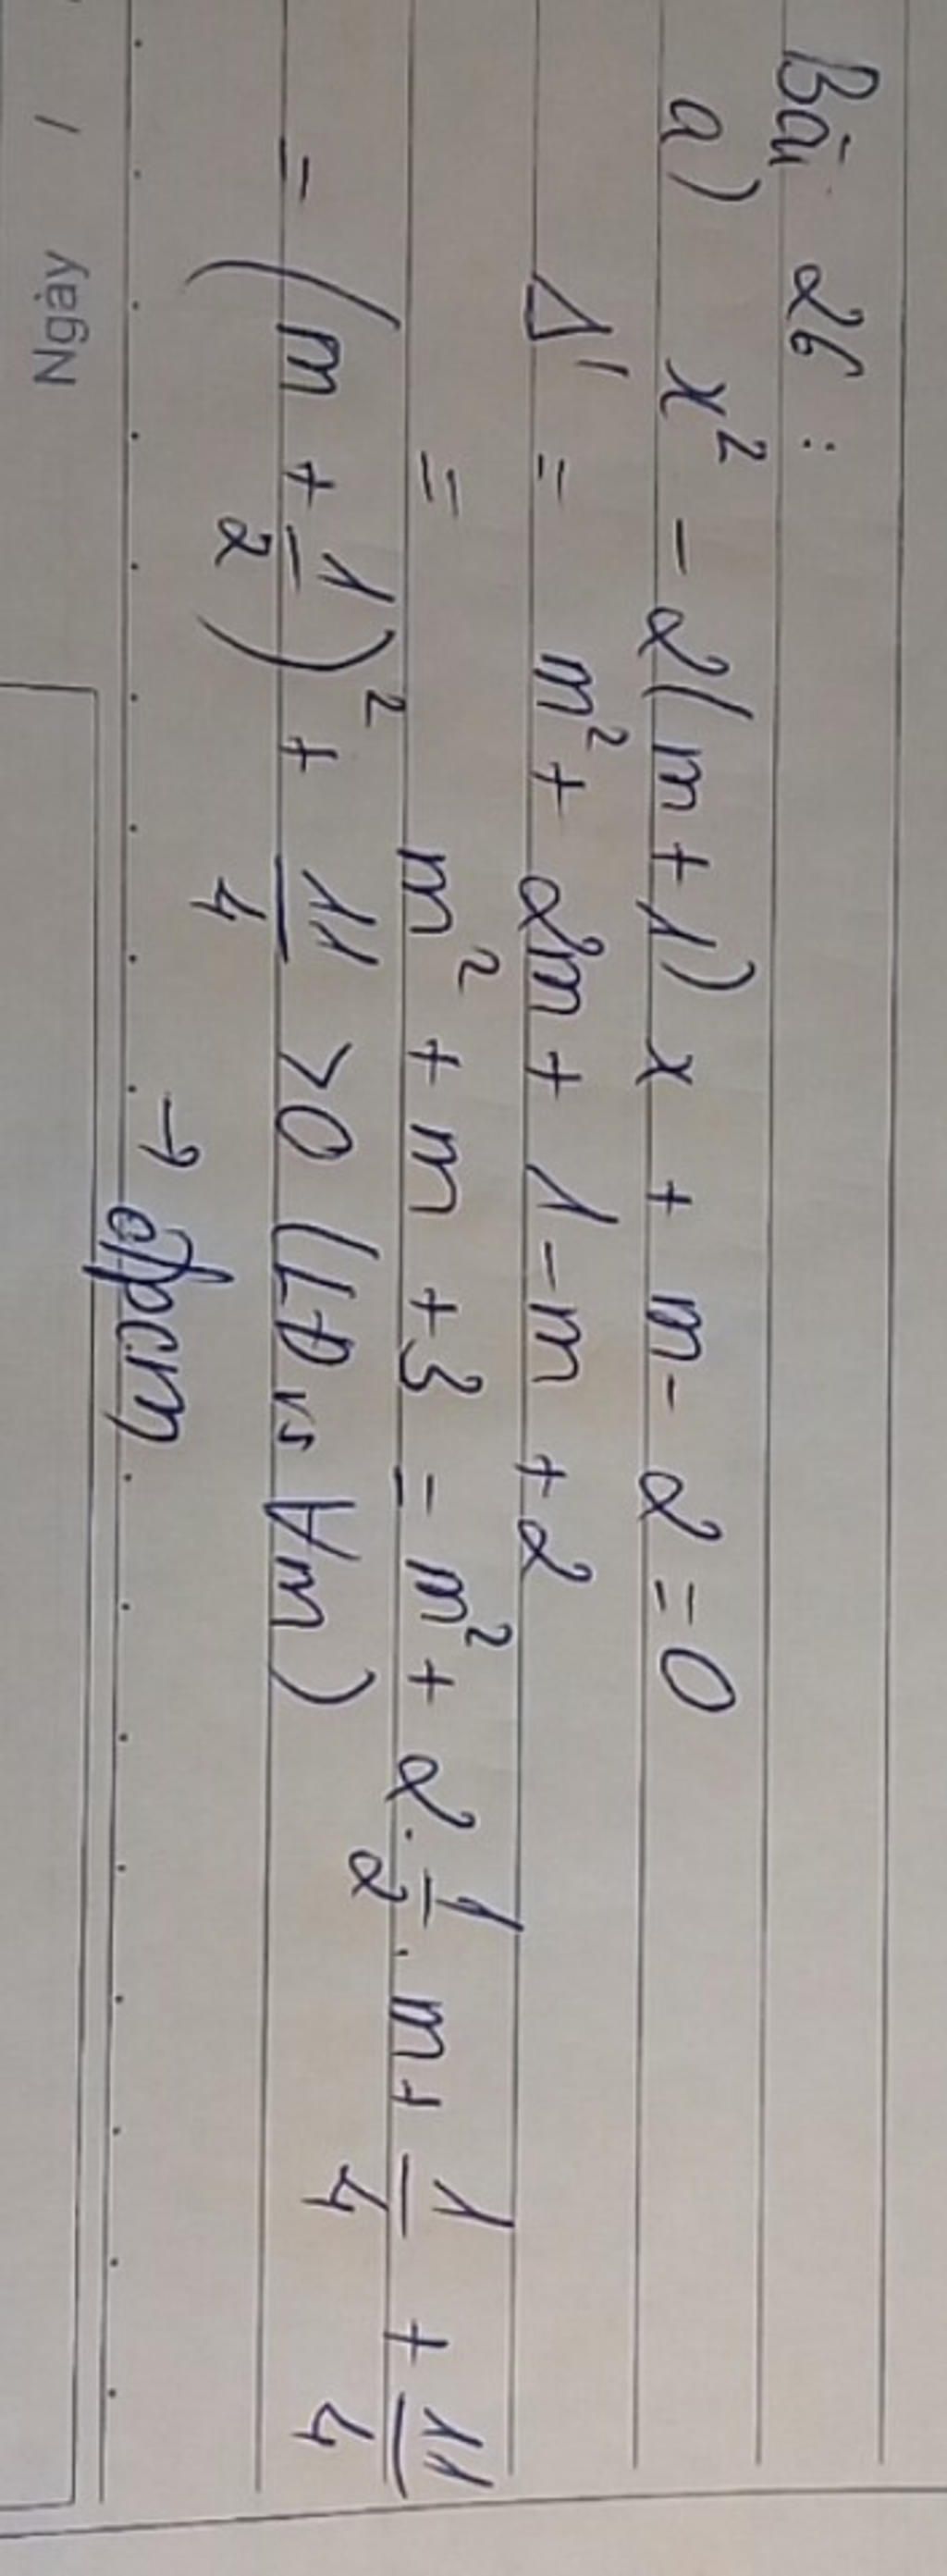 Bài 26 :
a) x² - 2(m + 1)x + m - 2 = 0
Δ' = m² + 2m + 1 - m + 2
= m² + m + 3 = m² + 2 . 1/2 . m + 1/4 + 11/4
= (m + 1/2)² + 11/4 > 0 (LĐ vs ∀m)
→ đpcm
Ngày /